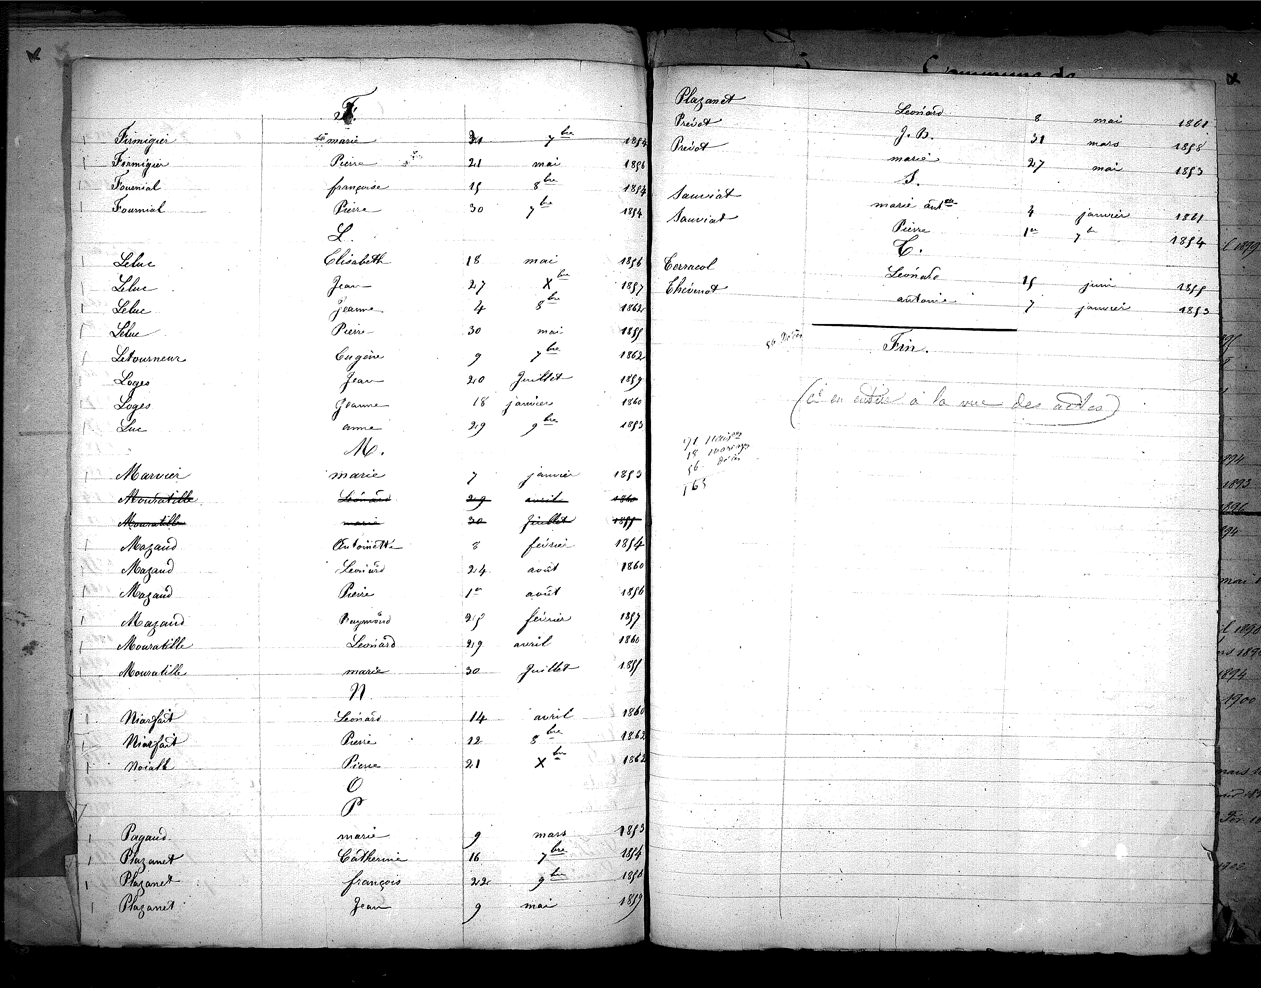 F.
1 Firmigier marie 21 7bre 1854
1 Formigier Pierre 21 mai 1856
1 Fournial françoise 15 8bre 1854
1 Fournial Pierre 30 7bre 1854
L.
1 Leluc Elisabeth 18 mai 1856
1 Leluc Jean 27 Xbre 1857
1 Leluc Jeanne 4 8bre 1862
1 Leluc Pierre 30 mai 1855
1 Letourneur Eugène 9 7bre 1862
1 Loges Jean 20 Juillet 1859
1 Loges Jeanne 18 janvier 1860
1 Luc anne 29 9bre 1853
M.
1 Marvier marie 7 janvier 1853
1 Mouratille Léonard 29 avril 1860
1 Mouratille marie 30 Juillet 1855
1 Mazaud Antoinette 8 février 1854
1 Mazaud Léonard 24 août 1860
1 Mazaud Pierre 1er août 1856
1 Mazaud Raymond 25 février 1857
1 Mouratille Léonard 29 avril 1860
1 Mouratille marie 30 Juillet 1855
N.
1 Niarfait Léonard 14 avril 1860
1 Niarfait Pierre 12 8bre 1862
1 Noialt Pierre 21 Xbre 1862
O
P
1 Pagaud marie 9 mars 1853
1 Plazanet Catherine 16 7bre 1854
1 Plazanet françois 22 9bre 1856
1 Plazanet Jean 9 mai 1859
Commune de
Plazanet Léonard 8 mai 1861
Prévot J. B. 31 mars 1858
Prévot marie 27 mai 1853
S.
Sauviat marie antte 4 janvier 1861
Sauviat Pierre 1er 7bre 1854
T.
Terracol Léonard 15 juin 1855
Thévenot antoine 7 janvier 1853
56 Décès
Fin.
à la vue des actes)
91 Naiss
18 mariages
56 décès
165